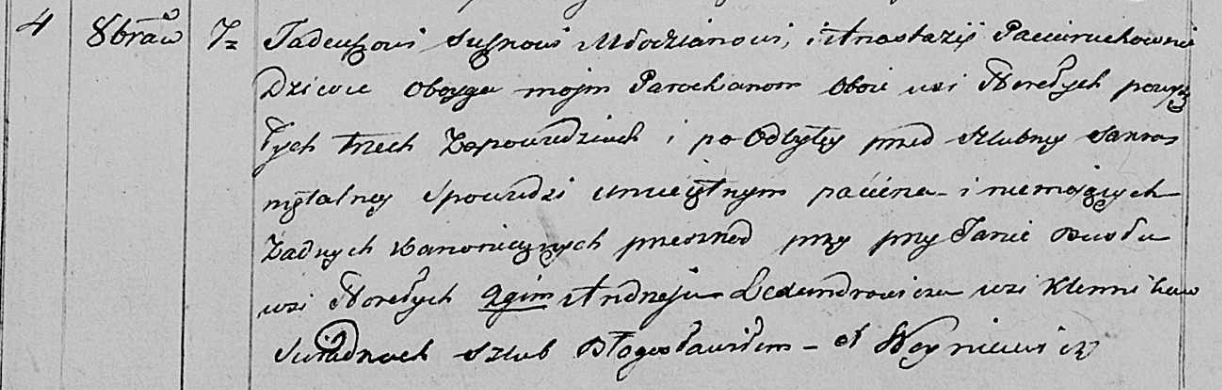 4 8braw 7 Tadeuszowi Susznowi Młodzianowi, i Anastazij Paciuruchownie
Dziewce Oboyga moim Parochianom Oboie wsi Horełych po
tych trzech Zapowiedziach i po Odbytey przed Szlubney Sakra
mętalney Spowiedzi umieiętnym pacierza i niemaiących
Żadnych Kanonicznych przeszkod przy przy Janie
wsi Horełych 2gim Andrzeju wsi
Swiadkach Szlub Błogosławiłem - X Woyniewicz